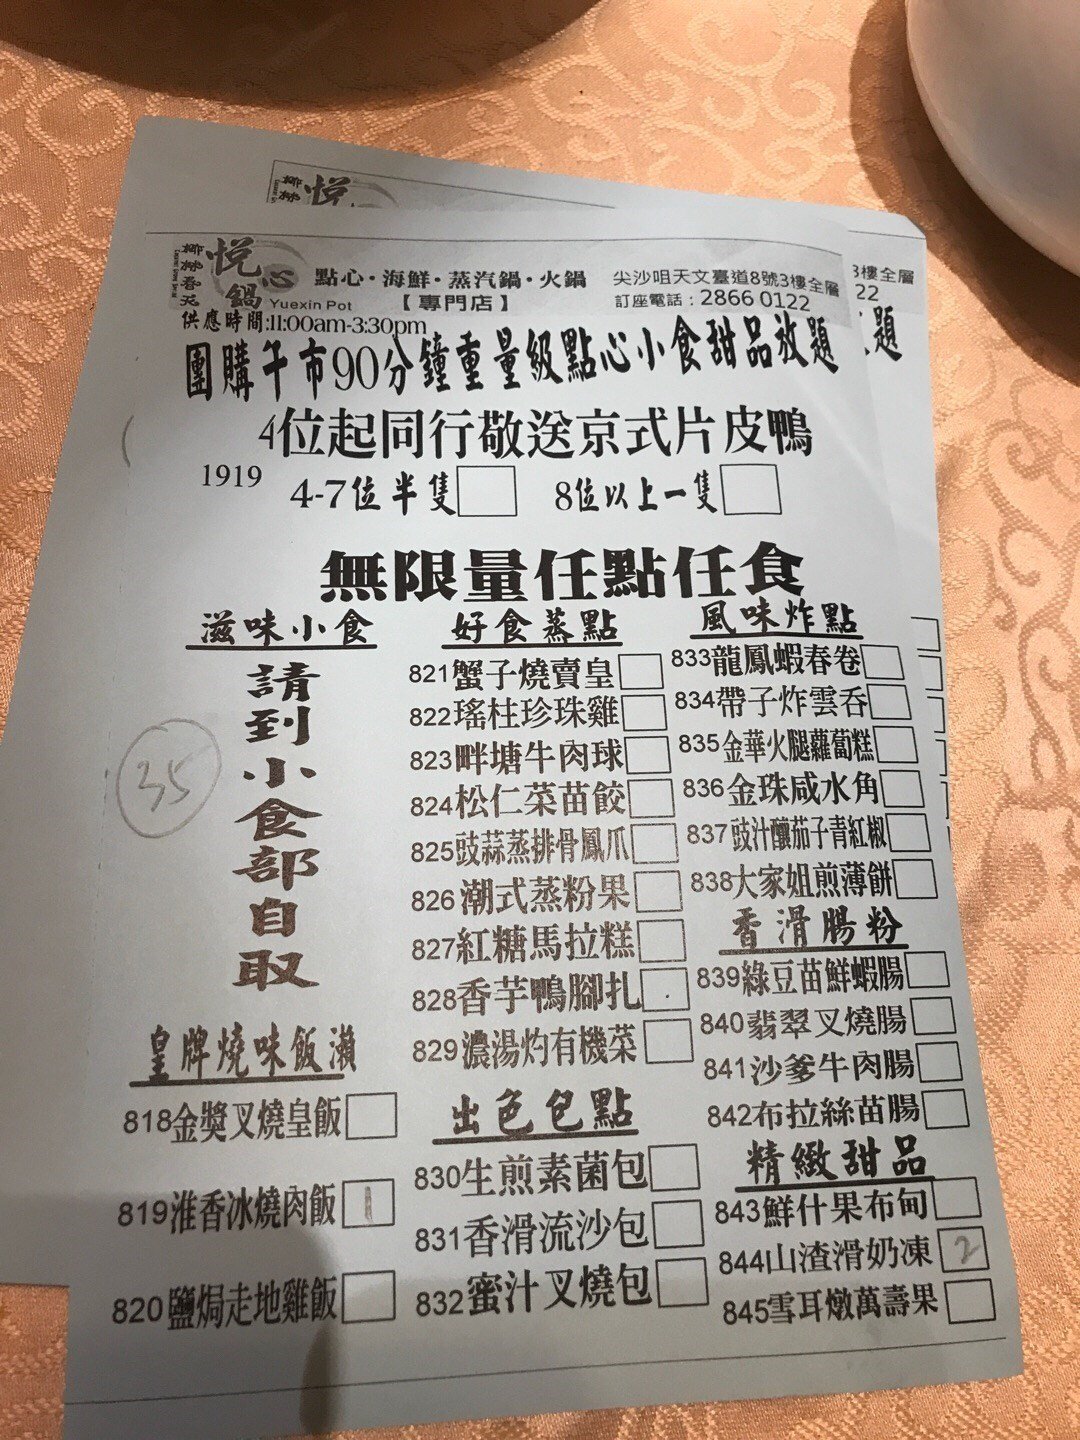 悦心鍋
Yuexin Pot
椰林春天
點心·海鮮·蒸汽鍋·火鍋
【專門店】
尖沙咀天文臺道8號3樓全層
訂座電話：2866 0122
3樓全層
22
供應時間:11:00am-3:30pm
團購午市90分鐘重量級點心小食甜品放題
題
4位起同行敬送京式片皮鴨
1919
4-7位半隻
8位以上一隻
無限量任點任食
滋味小食
請到小食部自取
35
皇牌燒味飯瀨
818金獎叉燒皇飯
819淮香冰燒肉飯 1
820鹽焗走地雞飯
好食蒸點
821蟹子燒賣皇
822瑤柱珍珠雞
823畔塘牛肉球
824松仁菜苗餃
825豉蒜蒸排骨鳳爪
826潮式蒸粉果
827紅糖馬拉糕
828香芋鴨腳扎
829濃湯灼有機菜
出色包點
830生煎素菌包
831香滑流沙包
832蜜汁叉燒包
風味炸點
833龍鳳蝦春卷
834帶子炸雲呑
835金華火腿蘿蔔糕
836金珠咸水角
837豉汁釀茄子青紅椒
838大家姐煎薄餅
香滑腸粉
839綠豆苗鮮蝦腸
840翡翠叉燒腸
841沙爹牛肉腸
842布拉絲苗腸
精緻甜品
843鮮什果布甸
844山渣滑奶凍 2
845雪耳燉萬壽果